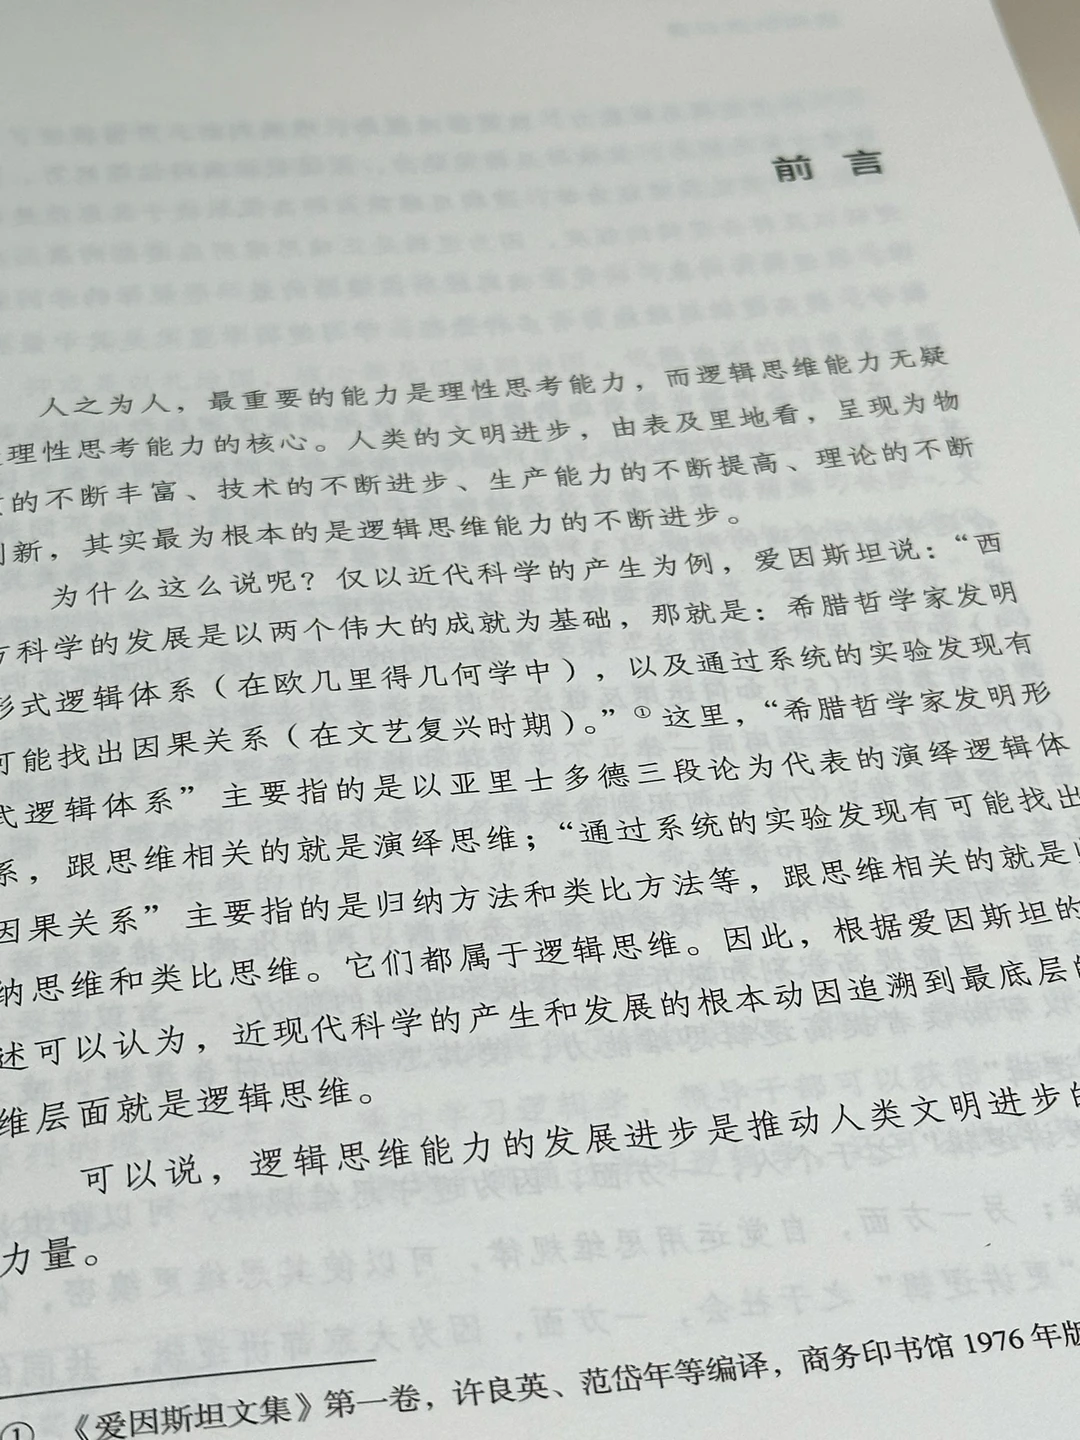 前言
人之为人，最重要的能力是理性思考能力，而逻辑思维能力无疑
理性思考能力的核心。人类的文明进步，由表及里地看，呈现为物
的不断丰富、技术的不断进步、生产能力的不断提高、理论的不断
创新，其实最为根本的是逻辑思维能力的不断进步。
为什么这么说呢？仅以近代科学的产生为例，爱因斯坦说：“西
方科学的发展是以两个伟大的成就为基础，那就是：希腊哲学家发明
形式逻辑体系（在欧几里得几何学中），以及通过系统的实验发现有
可能找出因果关系（在文艺复兴时期）。”①这里，“希腊哲学家发明形
式逻辑体系”主要指的是以亚里士多德三段论为代表的演绎逻辑体
系，跟思维相关的就是演绎思维；“通过系统的实验发现有可能找出
因果关系”主要指的是归纳方法和类比方法等，跟思维相关的就是归
纳思维和类比思维。它们都属于逻辑思维。因此，根据爱因斯坦的
述可以认为，近现代科学的产生和发展的根本动因追溯到最底层的
维层面就是逻辑思维。
可以说，逻辑思维能力的发展进步是推动人类文明进步的
力量。
①《爱因斯坦文集》第一卷，许良英、范岱年等编译，商务印书馆1976年版